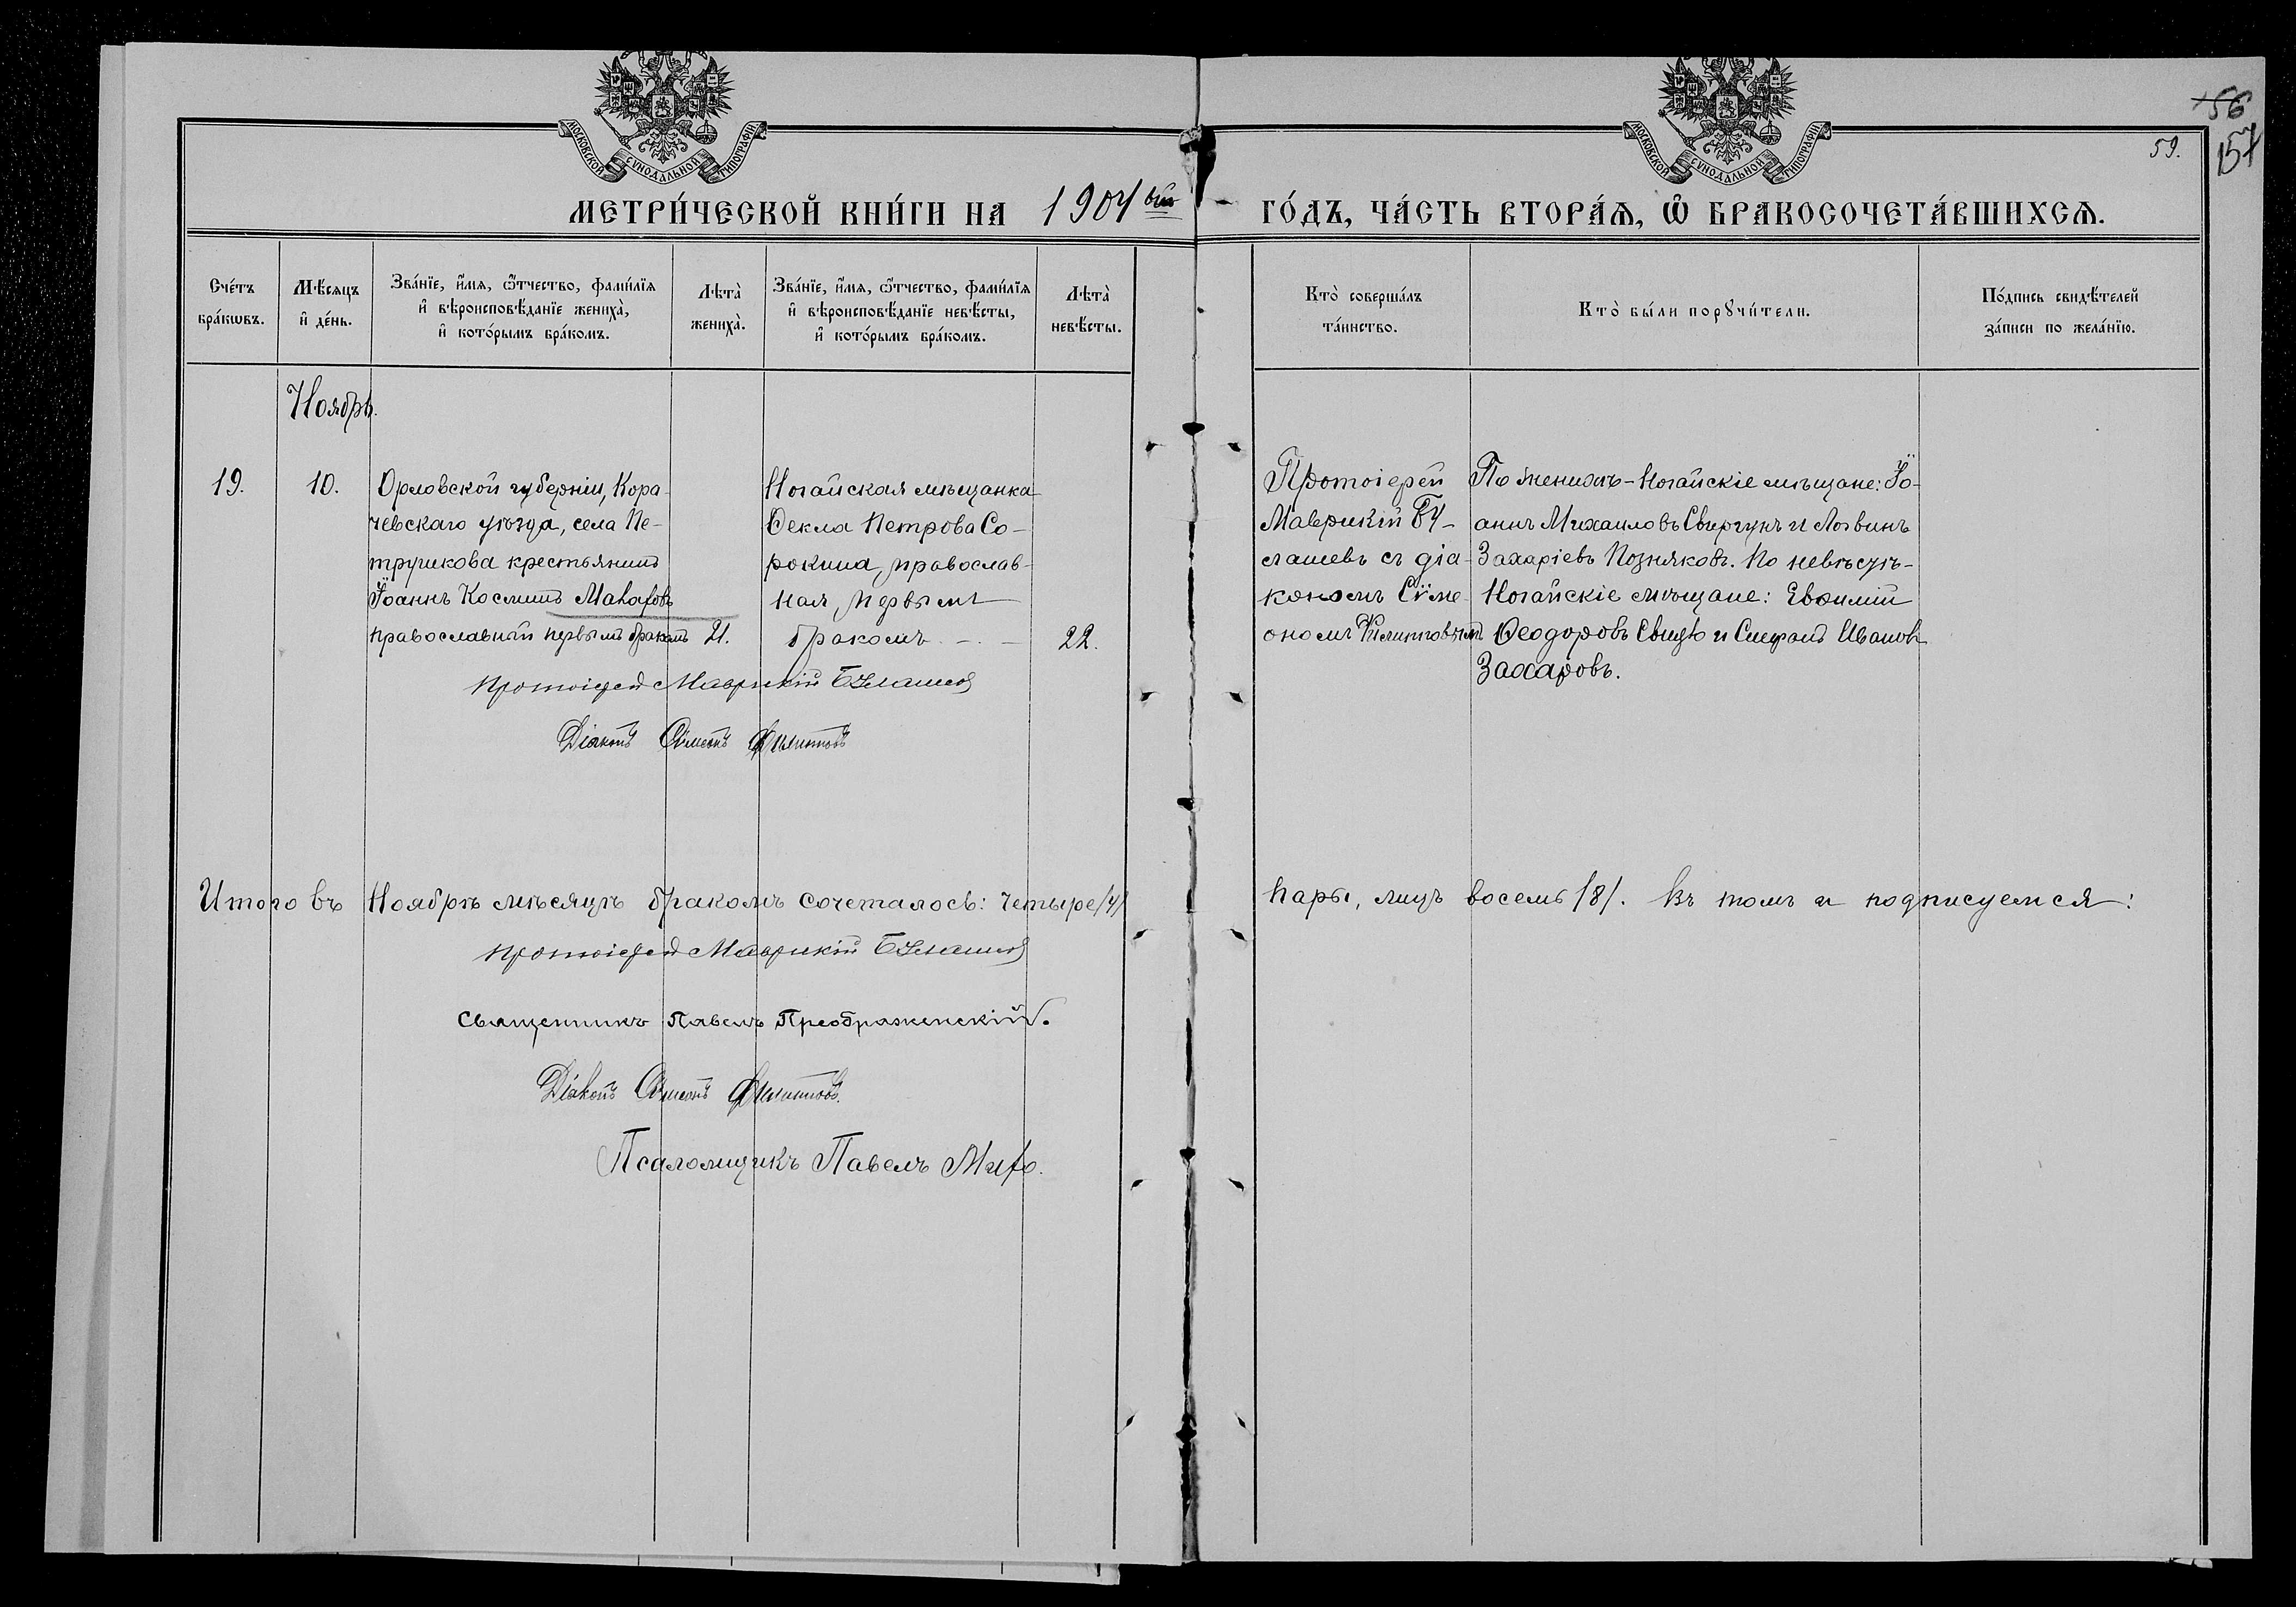 МОСКОВСКОЙ СУНОДАЛЬНОЙ ТИПОГРАФІИ
МОСКОВСКОЙ СУНОДАЛЬНОЙ ТИПОГРАФІИ
56
157
59.
МЕТРИ́ЧЕСКОЙ КНИ́ГИ НА 1904 ый ГО́ДЪ, ЧА́СТЬ ВТОРА́Ѧ, Ѡ҆ БРАКОСОЧЕТА́ВШИХСѦ.
Сче́тъ
бра́кωвъ.
Мѣ́сяцъ
и҆ де́нь.
Зва́нїе, и҆́мѧ, ѻ҆́тчество, фами́лїѧ
и҆ вѣроисповѣ́данїе жениха̀,
и҆ кото́рымъ бра́комъ.
Лѣта̀
жениха̀.
Зва́нїе, и҆́мѧ, ѻ҆́тчество, фами́лїѧ
и҆ вѣроисповѣ́данїе невѣ́сты,
и҆ кото́рымъ бра́комъ.
Лѣта̀
невѣ́сты.
Кто̀ соверша́лъ
та́инство.
Кто̀ бы́ли порꙋчи́тели.
По́дпись свидѣ́телей
за́писи по жела́нїю.
Ноябрь.
19.
10.
Орловской губерніи, Кора-
чевскаго уѣзда, села Пе-
трушкова крестьянинъ
Іоаннъ Косминъ Макаровъ
православный первымъ бракомъ
21.
Ногайская мѣщанка
Ѳекла Петрова Со-
рокина, православ-
ная, первымъ
бракомъ. —
22.
Протоіерей
Маврикій Бу-
глашевъ съ діа-
кономъ Сѵме-
ономъ Филипповымъ
По женихѣ - Ногайскіе мѣщане: Іо-
аннъ Михаиловъ Свиргунъ и Логвинъ
Захаріевъ Позняковъ. По невѣстѣ-
Ногайскіе мѣщане: Евѳимій
Ѳеодоровъ и Стефанъ Ивановъ
Захаровъ.
Протоіерей Маврикій
Діаконъ Сѵмеонъ Филипповъ
Итого въ Ноябрѣ мѣсяцѣ бракомъ сочеталось: четыре /4/ пары, лицъ восемь /8/. Въ томъ и подписуемся:
Протоіерей Маврикій
Священникъ Павелъ Преображенскій.
Діаконъ Сѵмеонъ Филипповъ.
Псаломщикъ Павелъ